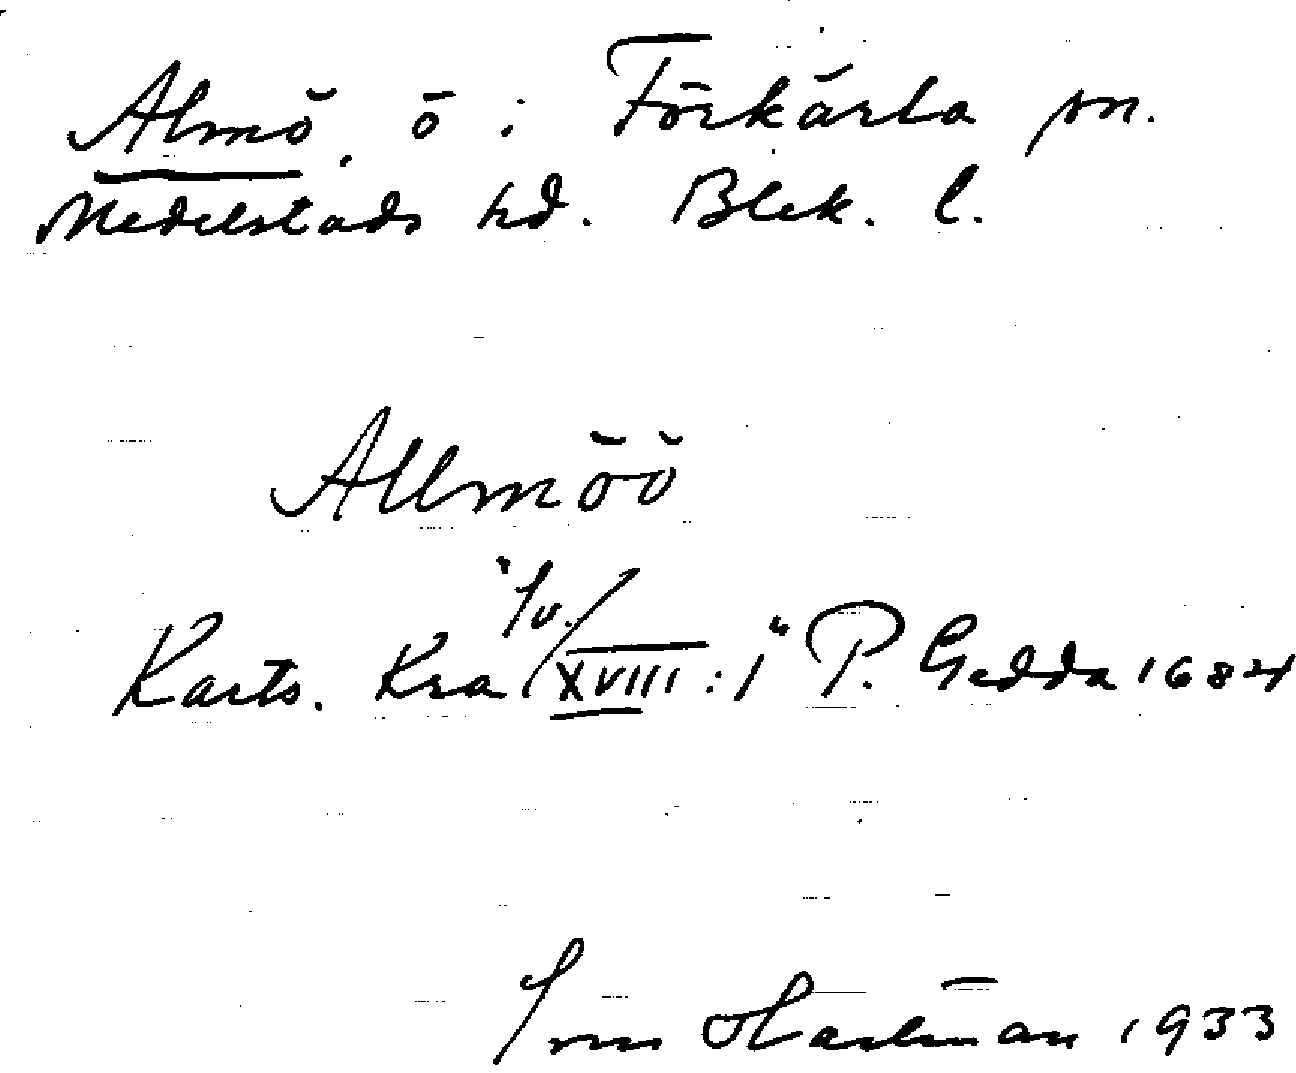 Almö, ö i Förkärla sn.
Medelstads hd. Blek. l.
Allmöö
Karts. Kra XVIII:1 P. Gedda 1684
Hartman 1933